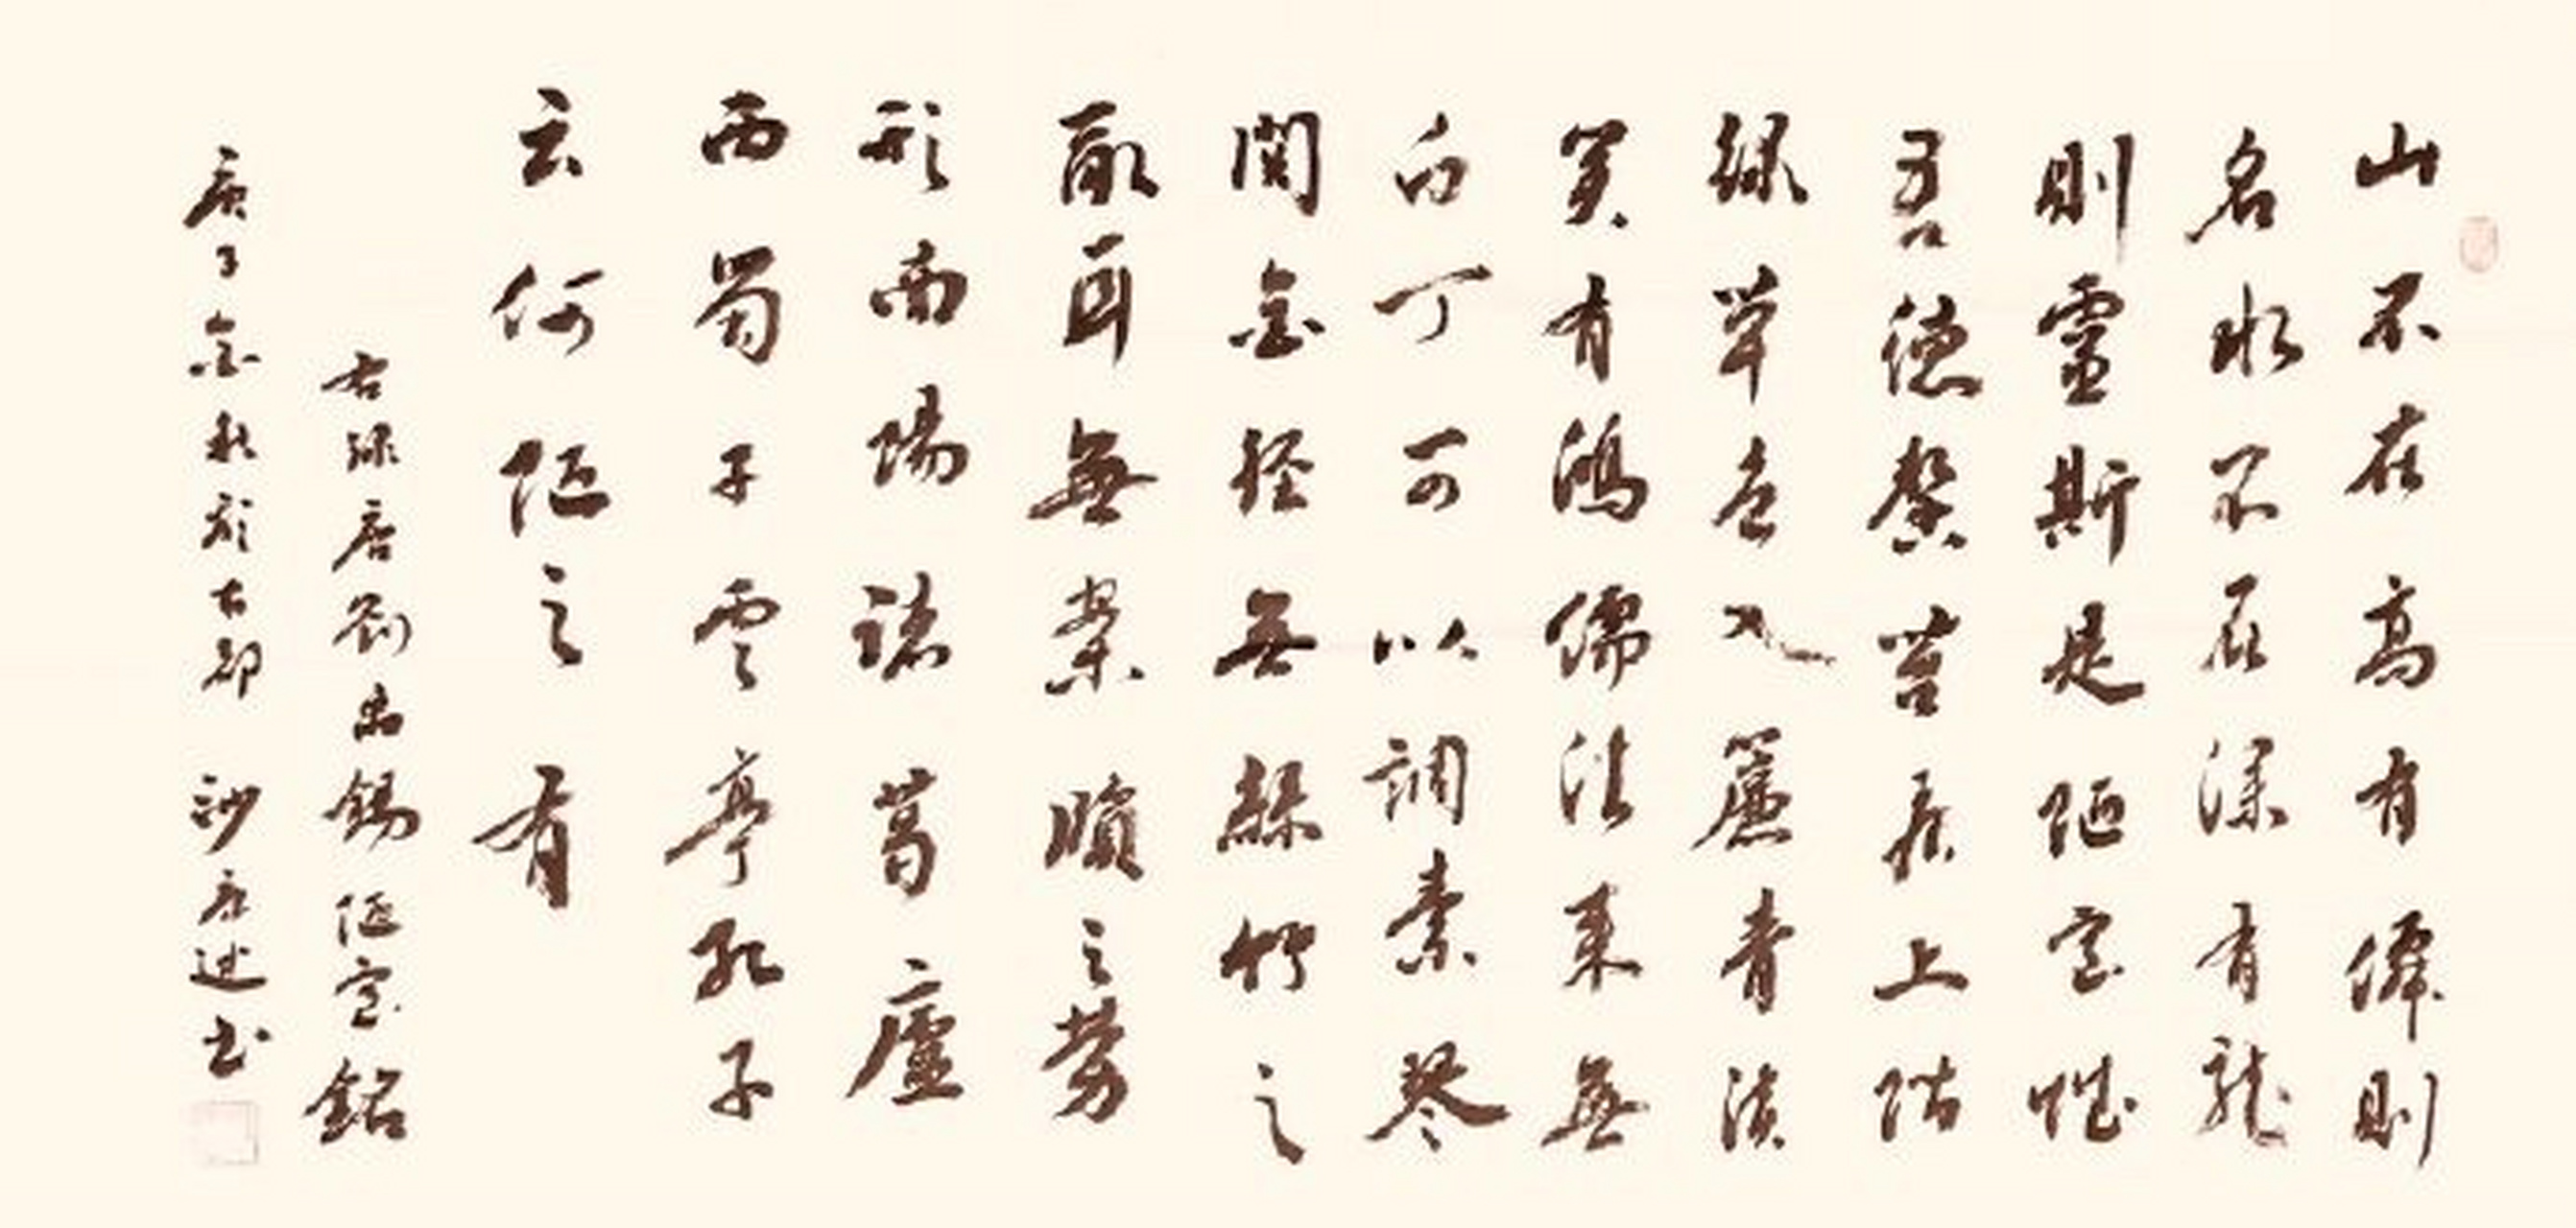 山不在高有僊則
名水不在深有龍
則靈斯是陋室惟
吾德馨苔痕上階
綠草色入簾青談
笑有鴻儒往来無
白丁可以調素琴
閱金経無絲竹之
亂耳無案牘之勞
形南陽諸葛廬
西蜀子雲亭孔子
云何陋之有
右録唐劉禹錫陋室銘
庚子金秋於古都 述书